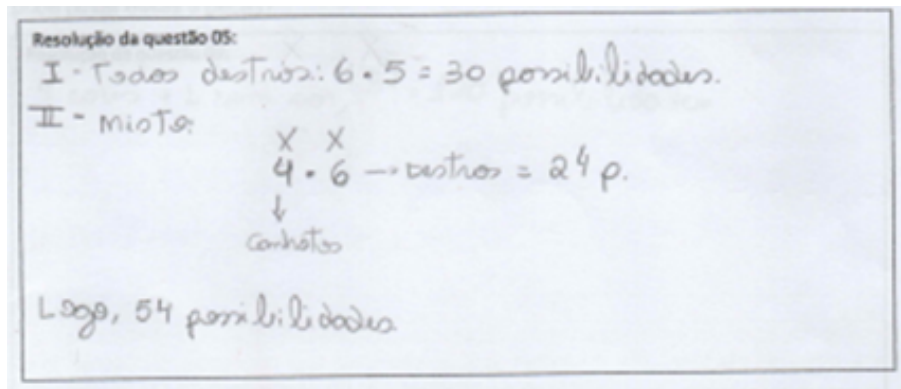 Resolução da questão 05:
I - Todos destros: 6 • 5 = 30 possibilidades.
II - Misto:
X X
4 • 6 → Destros = 24 p.
↓
Canhotos
Logo, 54 possibilidades